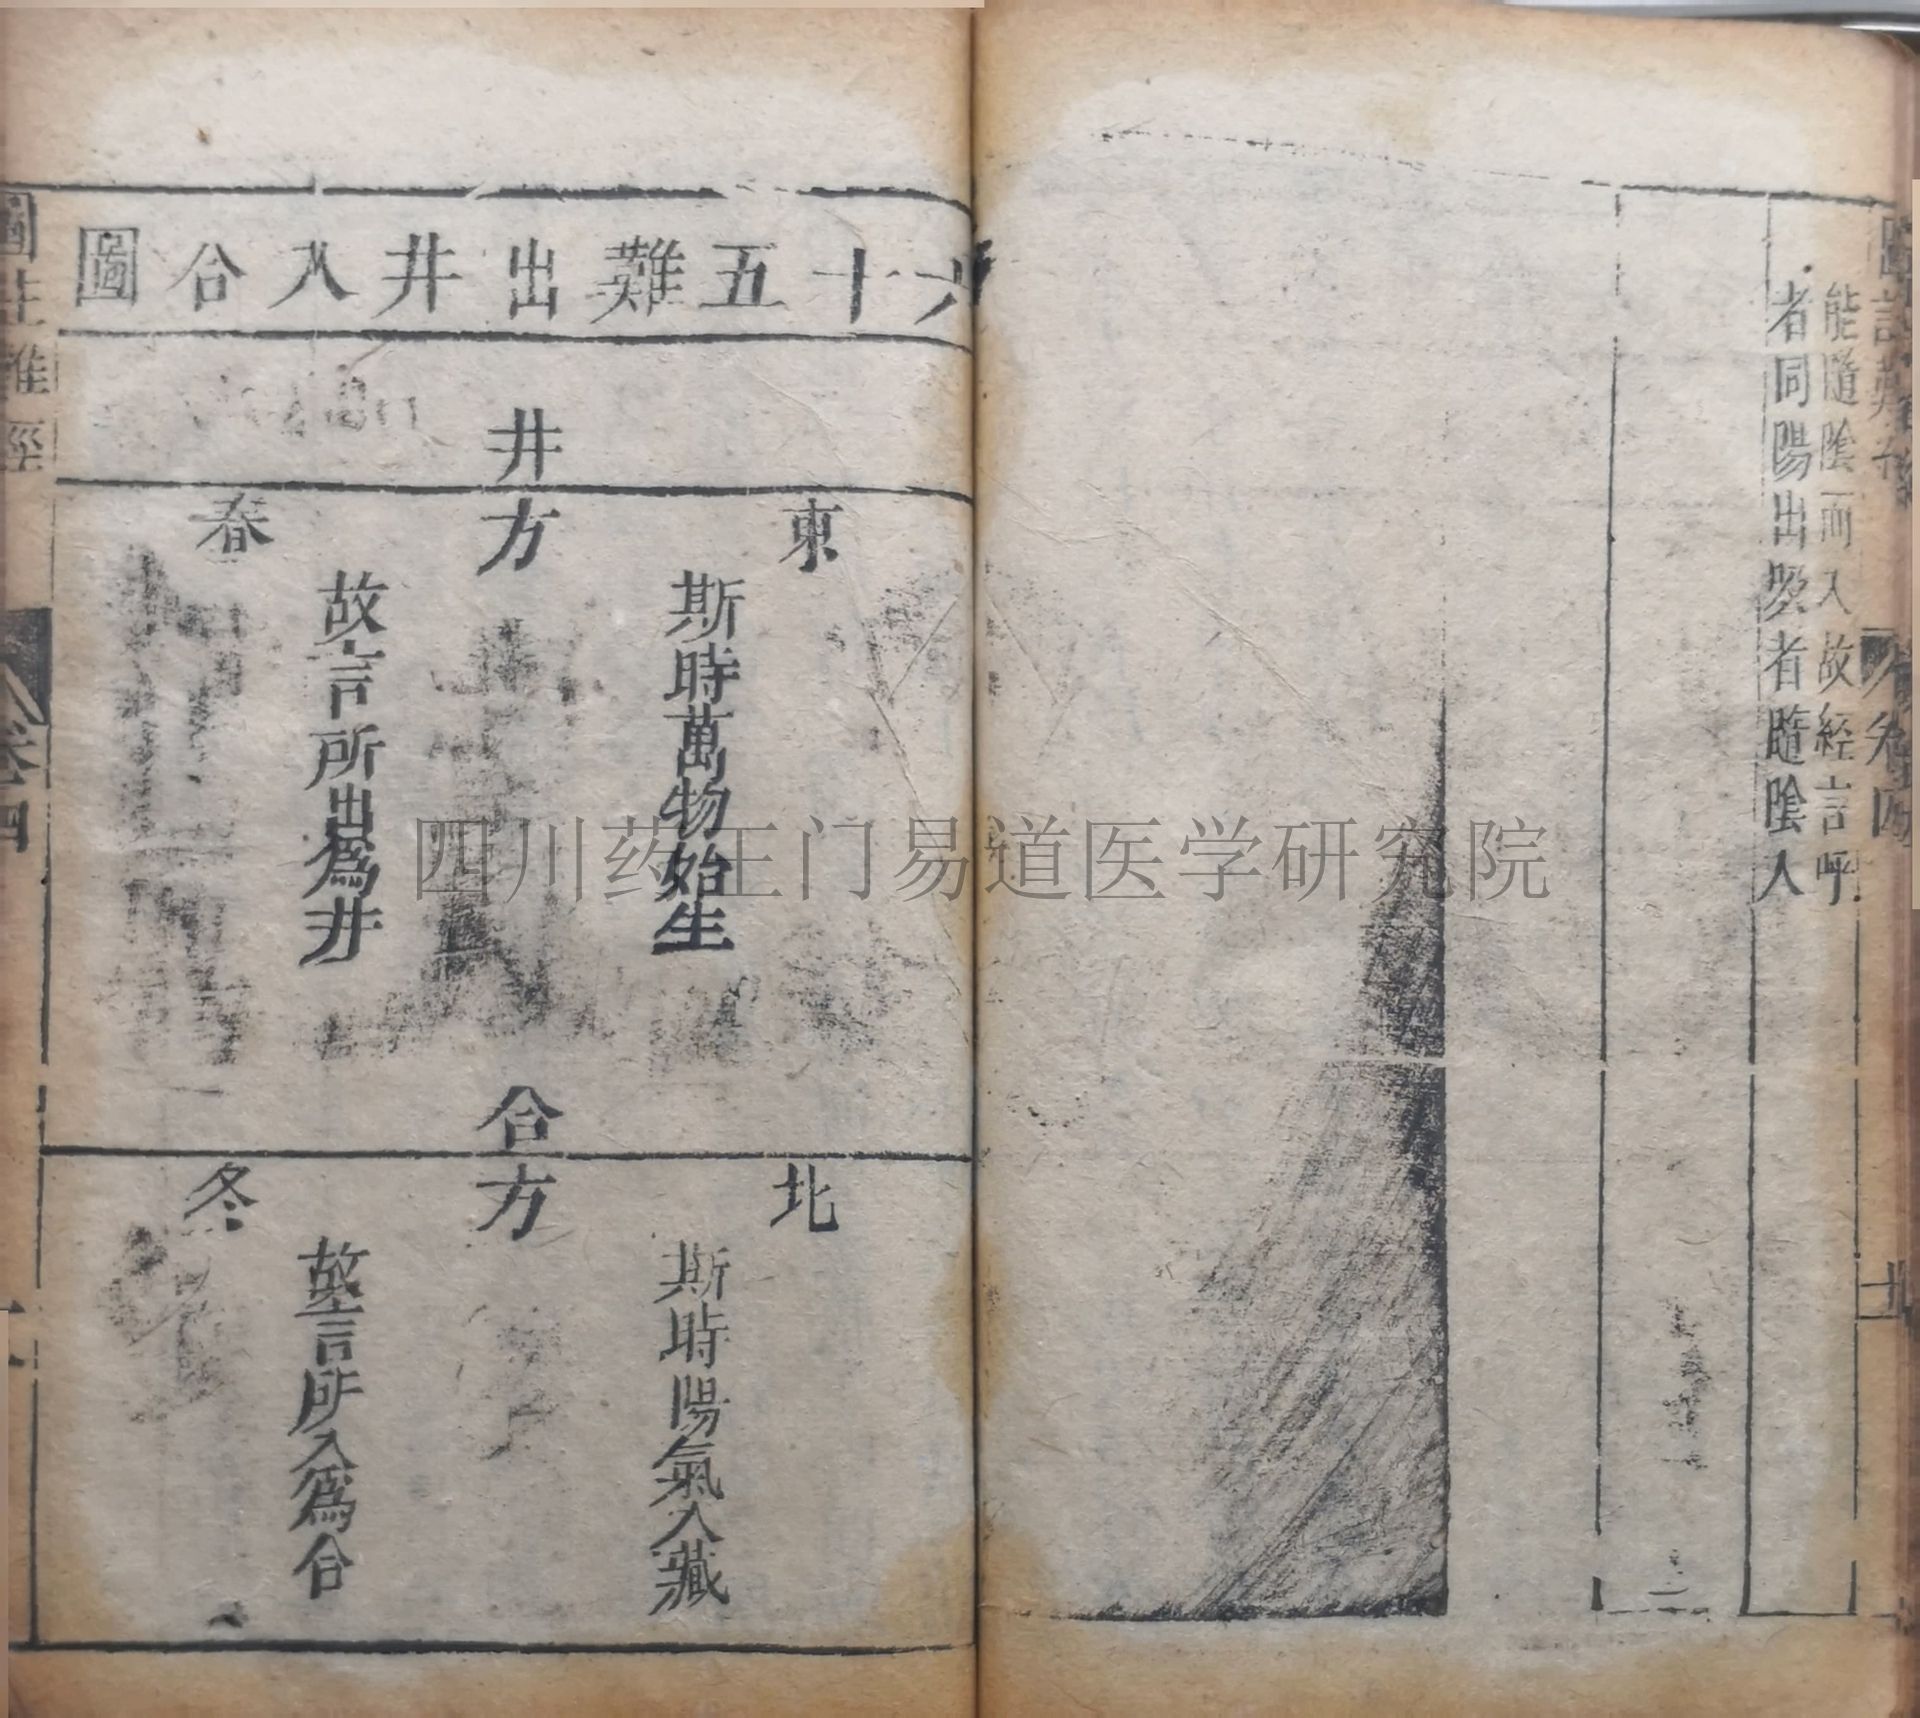 能隨陰而入故經言呼
者同陽出吸者隨陰入
六十五難出井入合圖
井
東方春
斯時萬物始生
故言所出為井
合
北方冬
斯時陽氣入藏
故言所入為合
卷四
四川药王门易道医学研究院